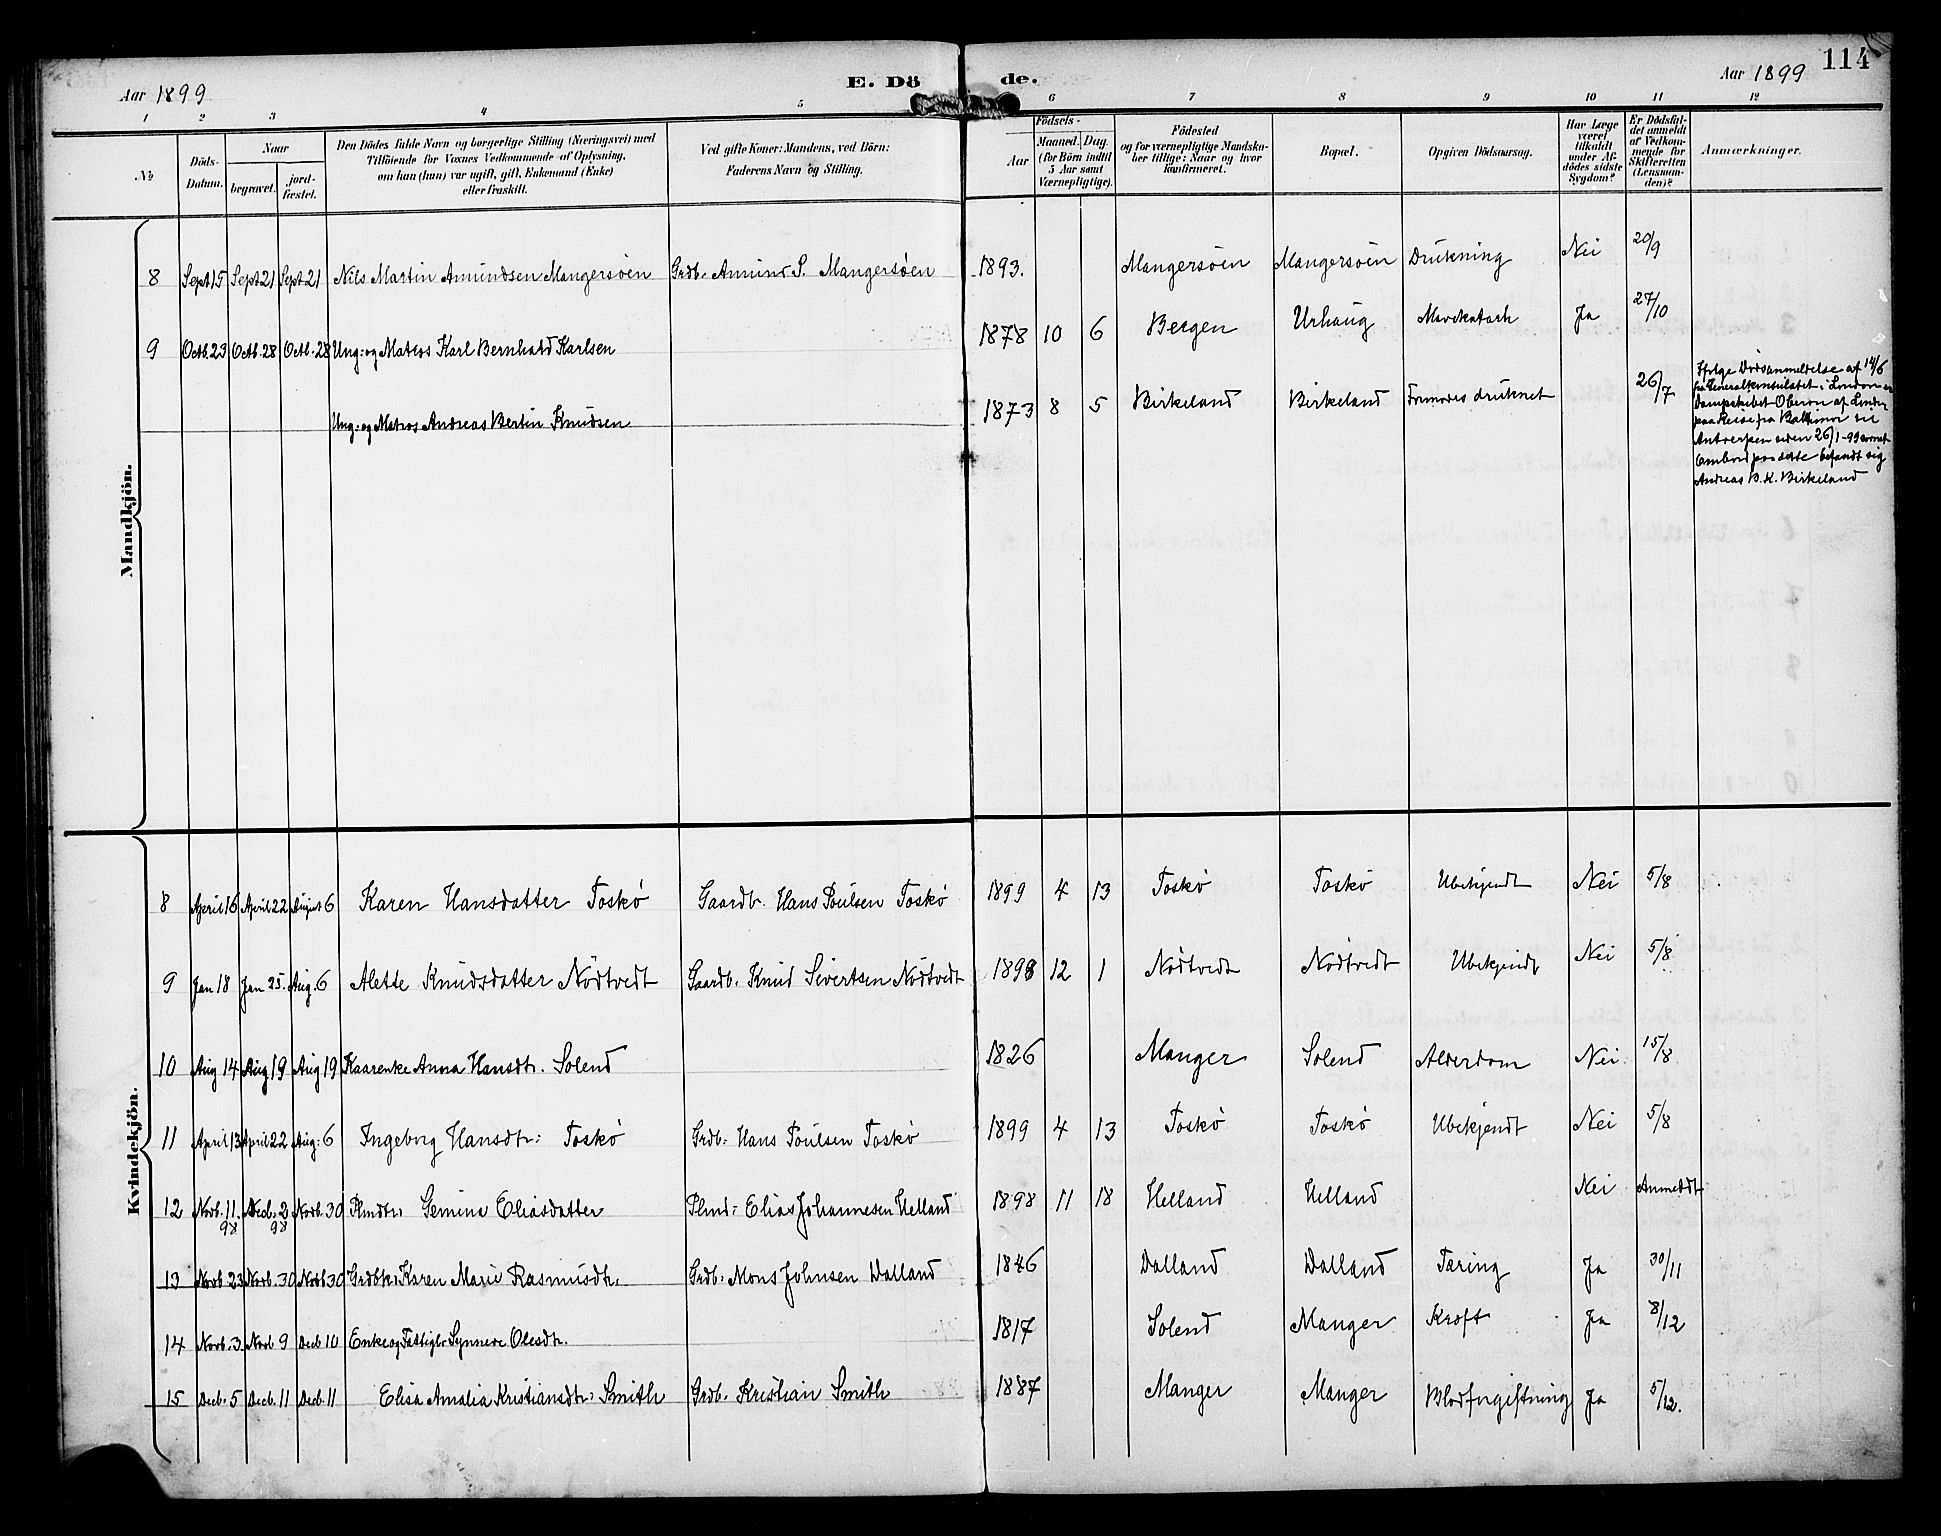 Aar 1899
E. Dö de.
Aar 1899 114
1 2 3 4 5 6 7 8 9 10 11 12
No
Döds-Datum.
Naar
begravet.
jord-fæstet.
Den Dödes fulde Navn og borgerlige Stilling (Næringsvei) med
Tilföiende for Voxnes Vedkommende af Oplysning,
om han (hun) var ugift, gift, Enkemand (Enke)
eller fraskilt.
Ved gifte Koner: Mandens, ved Börn:
Faderens Navn og Stilling.
Födsels-
Aar
Maaned. Dag.
(for Börn indtil
5 Aar samt
Værnepligtige).
Födested
og for værnepligtige Mandska-
ber tillige: Naar og hvor
konfirmeret.
Bopæl.
Opgiven Dödsaarsag.
Har Læge
været
tilkaldt
under Af-
dödes sidste
Sygdom?
Er Dödsfal-
det anmeldt
af Vedkom-
mende for
Skifteretten
(Lensman-
den)?
Anmærkninger.
Mandkjön.
8 Sept 15 Sept 21 Sept 21 Nils Martin Amundsen Mangersöen Grdb. Amund P. Mangersöen 1893. Mangersöen Mangersöen Drukning Nei 20/9
9 Octb. 23 Octb. 28 Octb. 28 Ung: og Matros Karl Bernhard Karlsen 1878 10 6 Bergen Urhaug Ja 27/10
Ung: og Matros Andreas Bertin Knudsen 1873 8 5 Birkeland Birkeland Formodes druknet 26/7
Ifølge Dødsanmeldelse af 14/6
fra Generalkonsulatet i London er
Dampskibet Oberon af
paa Reise fra til
Antwerpen siden 26/1-99
Ombord paa dette befandt sig
Andreas B. K. Birkeland
Kvindekjön.
8 April 16 April 22 August 6 Karen Hansdatter Toskö Gaardb. Hans Poulsen Toskö 1899 4 13 Toskö Toskö Ubekjendt Nei 5/8
9 Jan 18 Jan 25. Aug. 6 Alette Knudsdatter Nödtvedt Gaardb. Knud Sivertsen Nödtvedt 1898 12 1 Nödtvedt Nödtvedt Ubekjendt Nei 5/8
10 Aug 14 Aug 19 Aug 19 Kaarenke Anna Hansdtr. Solend 1826 Manger Solend Alderdom Nei 15/8
11 April 13 April 22 Aug: 6 Ingeborg Hansdtr: Toskö Grdb: Hans Poulsen Toskö 1899 4 13 Toskö Toskö Ubekjendt Nei 5/8
12 Novb. 11. 98 Decb. 2 98 Novb. 30 Plmdtr. Gemina Eliasdatter Plmd: Elias Johannesen Helland 1898 11 18 Helland Helland Nei Anmeldt
13 Novb. 23 Novb. 30 Novb 30 Grdbk: Karen Marie Rasmusdtr. Grdb: Mons Johnsen Dalland 1846 Dalland Dalland Tæring Ja 30/11
14 Novb. 3 Novb 9 Decb 10 Enke og Fattigl: Synneve Olesdtr. 1817 Solend Manger Kræft Ja 8/12
15 Decb. 5 Decb. 11 Decb. 11 Elisa Amalia Kristiansdtr: Smith Grdb. Kristian Smith 1887 Manger Manger Blodforgiftning Ja 5/12.